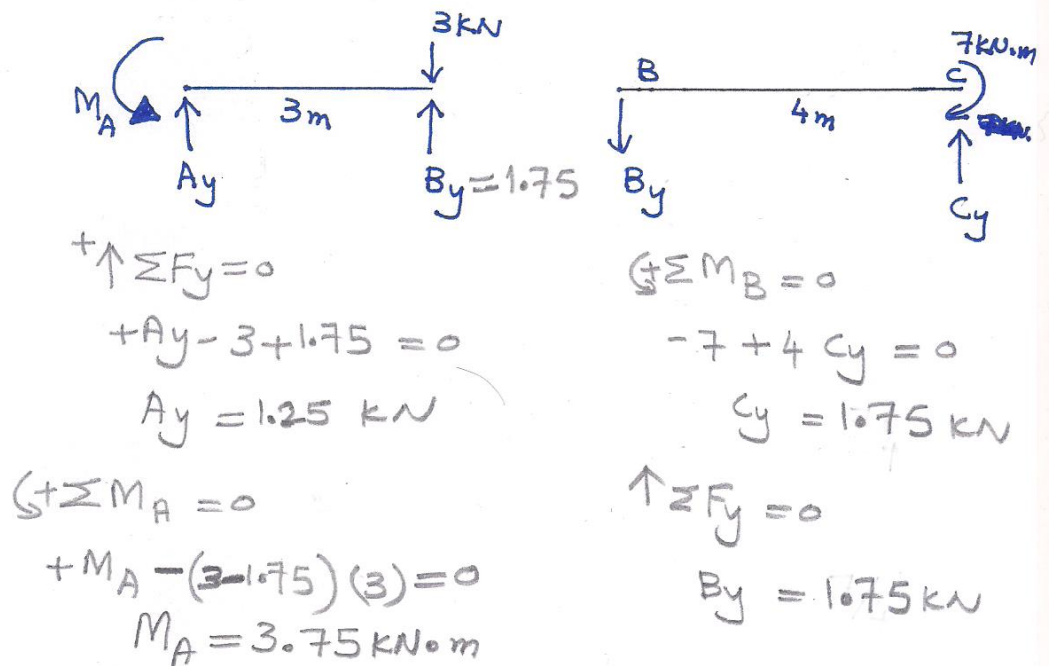 3KN
M_A
3m
Ay
By=1.75
+↑ΣFy=0
+Ay-3+1.75=0
Ay=1.25 KN
↺+ΣM_A=0
+M_A-(3-1.75)(3)=0
M_A=3.75KN.m
7KN.m
B
C
4m
By
Cy
↺+ΣM_B=0
-7+4Cy=0
Cy=1.75KN
↑ΣFy=0
By=1.75KN